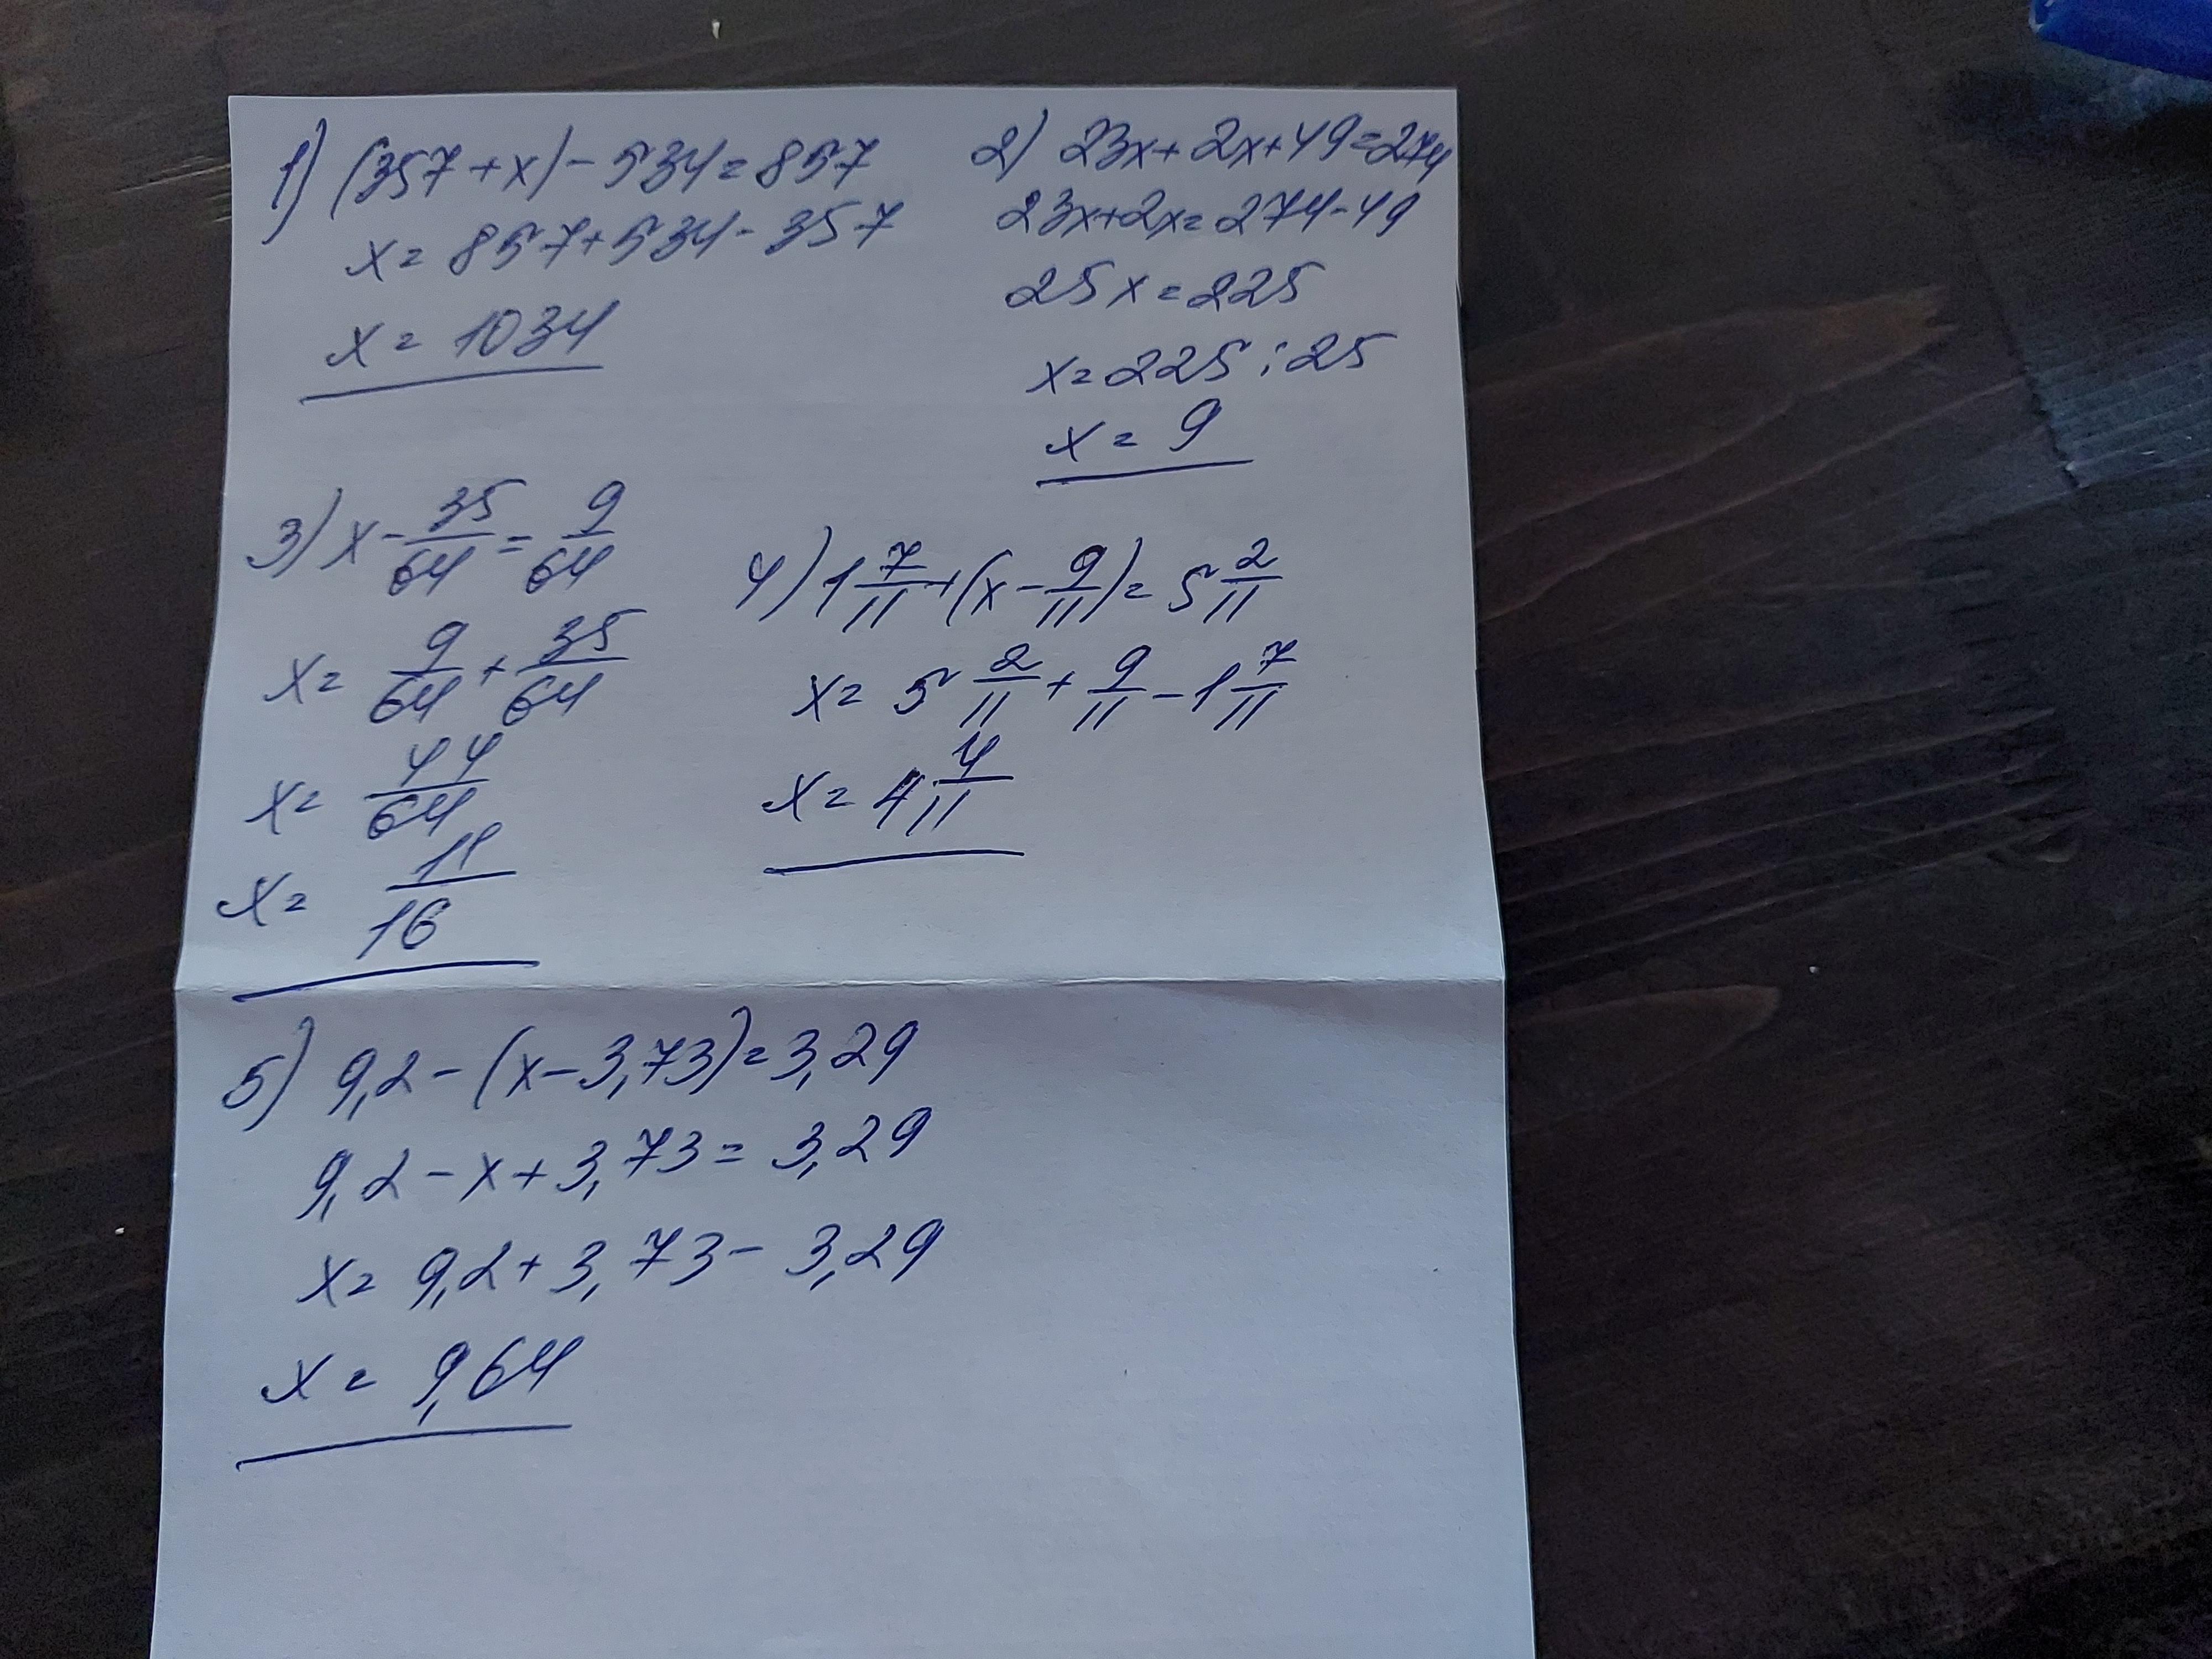 1) (357+x)-534=857
x=857+534-357
x=1034
2) 23x+2x+49=274
23x+2x=274-49
25x=225
x=225:25
x=9
3) x-35/64=9/64
x=9/64+35/64
x=44/64
x=11/16
4) 1 7/11+(x-9/11)=5 2/11
x=5 2/11+9/11-1 7/11
x=4 4/11
5) 9,2-(x-3,73)=3,29
9,2-x+3,73=3,29
x=9,2+3,73-3,29
x=9,64